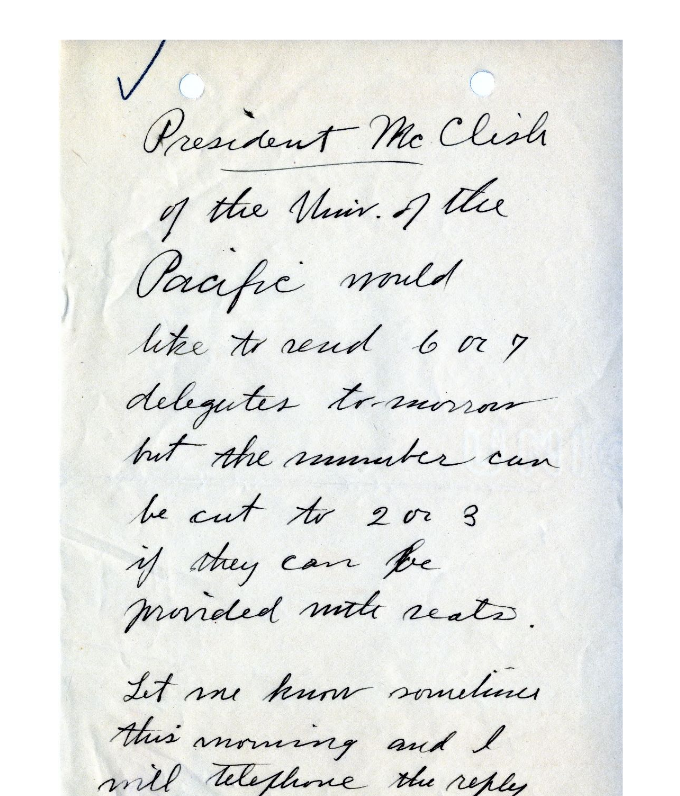 President McClish
of the Univ. of the
Pacific would
like to send 6 or 7
delegates to-morrow
but the number can
be cut to 2 or 3
if they can be
provided with seats.
Let me know sometime
this morning and I
will telephone the reply